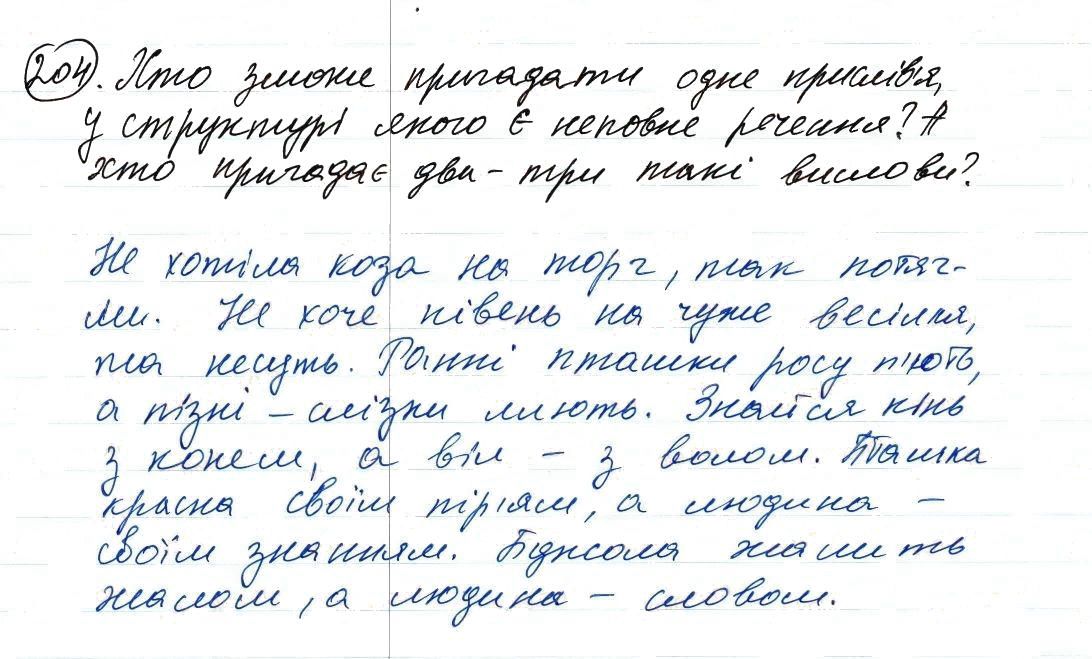 204. Хто зможе пригадати одне прислівя,
у структурі якого є неповне речення? А
хто пригадає два-три такі вислови?
Не хотіла коза на торг, так потяг-
ли. Не хоче півень на чуже весілля,
та несуть. Ранні пташки росу п'ють,
а пізні – слізки ллють. Знайся кінь
з конем, а віл – з волом. Пташка
красна своїм пір'ям, а людина –
своїм знанням. Бджола жалить
жалом, а людина – словом.